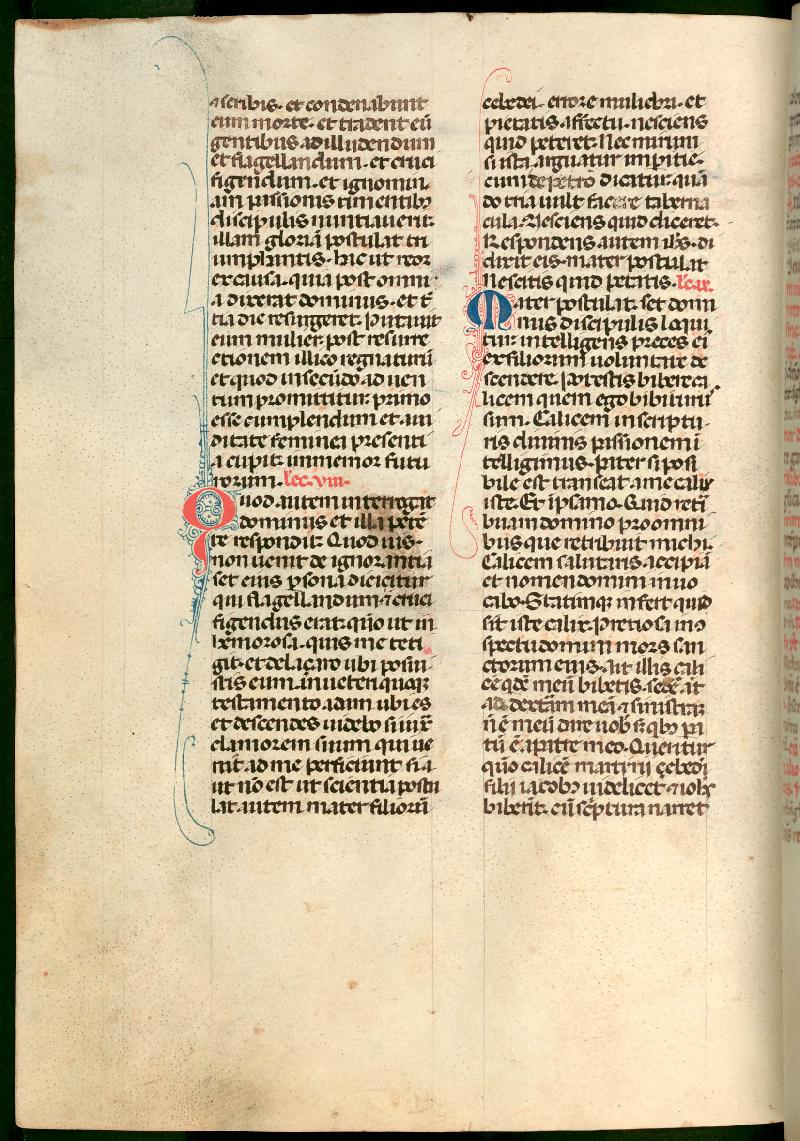 ⁊ scribis. et condenabunt
eum morte. et tradent eū
gentibus. ad illudendum
et flagellandum. et cruci
figendum. et ignomin.
am passionis timentibꝫ
discipulis nuntiauerit.
illam gloriā postulat tri
umphantis. hac ut reor
ex causa. quia post omni
a dixerat dominus. et t̄
tia die resurgeret. Putauit
eum mulier. post resurre
ctionem illico regnaturū
et quod in secūdo aduen
tum promittitur. primo
esse cumplendum et aui
ditate feminei presenti
a cupit. inmemor futu
rorum. lec. viii.
Quod autem interrogit
dominus et illa petē
te respondit. Quod uis.
non uenit de ignorantia
set eius ꝑsona dicicitur
qui flagellandum. ⁊ cruci
figendus erat. quō ut in
hemorosa. quis me teti
git. et de laçaro ubi posui
stis eum. in ueteri quaqꝫ
testamento. adam ubi es
et descendes uidebo si iuxͣ
clamorem suum qui ue
nit ad me perficiunt si a
ut nō est ut sciential postu
lat. autem mater filiorū
cebedei. errore muliebri. et
pietatis. affectu. nesciens
quid peteret. Nec mirum
si ista. arguatur impitie.
cum de petro dicatur. quā
do tria uult facere taberna
cula. Nesciens quid diceret.
Respondens autem ih̄s. di
dixit eis. mater postulat
Nescitis quid petatis. lc. ix.
Mater postulat. set domi
nus discipulis loqui
tur. intelligens preces ei
ex filiorum uoluntate de
scendere. Potestis bibere ca
licem quem ego bibiturus
sum. Calicem in scriptu
ris diuinis passionem ī
telligimus. Pater si posi
bile est transeat a me calix
iste. Et ī psamo. Quid retͥ
buam domino pro omni
bus que retribuit michi.
Calicem salutaris. accipiā
et nomen domini inuo
cabo. Statimqꝫ infert quid
sit iste calix. Pretiosa in co
spectu domini mors san
ctorum eius. Ait illis cali
cē qdē meū bibetis. sedē āt
ad dextam meā ⁊ sinistraꝫ
nē meū dare uob̄ sꝫ qbꝫ pa
tū ē a patre meo. Queritur
quō calicē martirii çebedi
filii iacobꝫ uidelicet ⁊ iohs
biberit. cū scͥptura narret